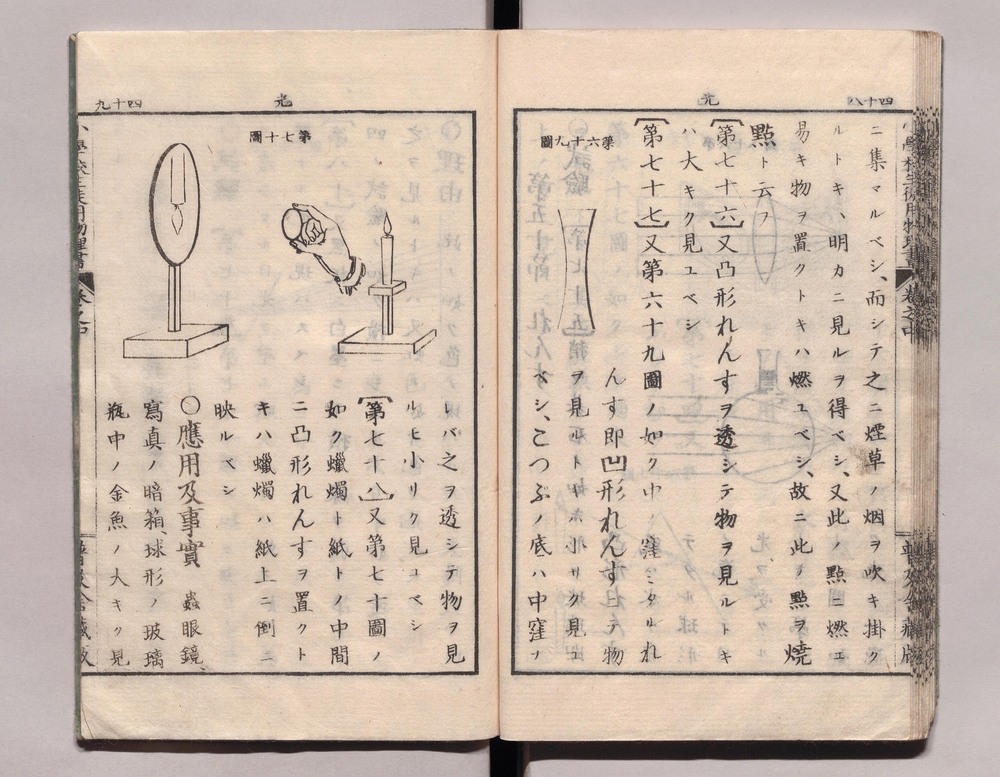 四十八
光
ニ集マルベシ、而シテ之ニ煙草ノ烟ヲ吹キ掛ク
ルトキハ、明カニ見ルヲ得ベシ、又此ノ點ニ燃エ
易キ物ヲ置クトキハ燃ユベシ、故ニ此ノ點ヲ燒
點ト云フ
〔第七十六〕又凸形れんすヲ透シテ物ヲ見ルトキ
ハ大キク見ユベシ
〔第七十七〕又第六十九圖ノ如ク中ノ窪ミタルれ
第六十九圖
んす即凹形れんすニテ物
ヲ見ルトキハ小サク見ユ
ベシ、こつぷノ底ハ中窪ノ
四十九
光
レバ之ヲ透シテ物ヲ見
ルモ小サク見ユベシ
〔第七十八〕又第七十圖ノ
如ク蠟燭ト紙トノ中間
ニ凸形れんすヲ置クト
キハ蠟燭ハ紙上ニ倒ニ
映ルベシ
第七十圖
〇應用及事實 蟲眼鏡、
寫真ノ暗箱、球形ノ玻璃
瓶中ノ金魚ノ大キク見
小學校生徒用物理書
卷之中
普及舍藏版